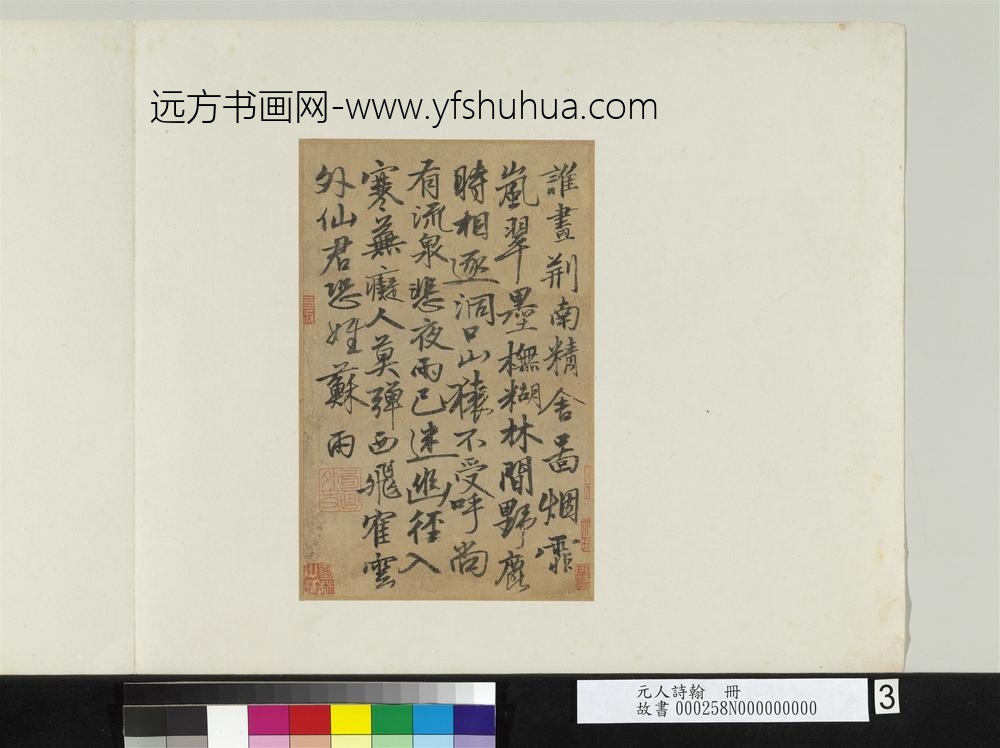 远方书画网-www.yfshuhua.com
誰畫荆南精舍圖烟霏
嵐翠墨橅糊林間野鹿
時相逐洞口山猿不受呼尚
有流泉悲夜雨已迷幽徑入
寒蕪癡人莫彈西飛隺雲
外仙君恐姓蘇 雨
元人詩翰　冊
故書 000258N000000000
3